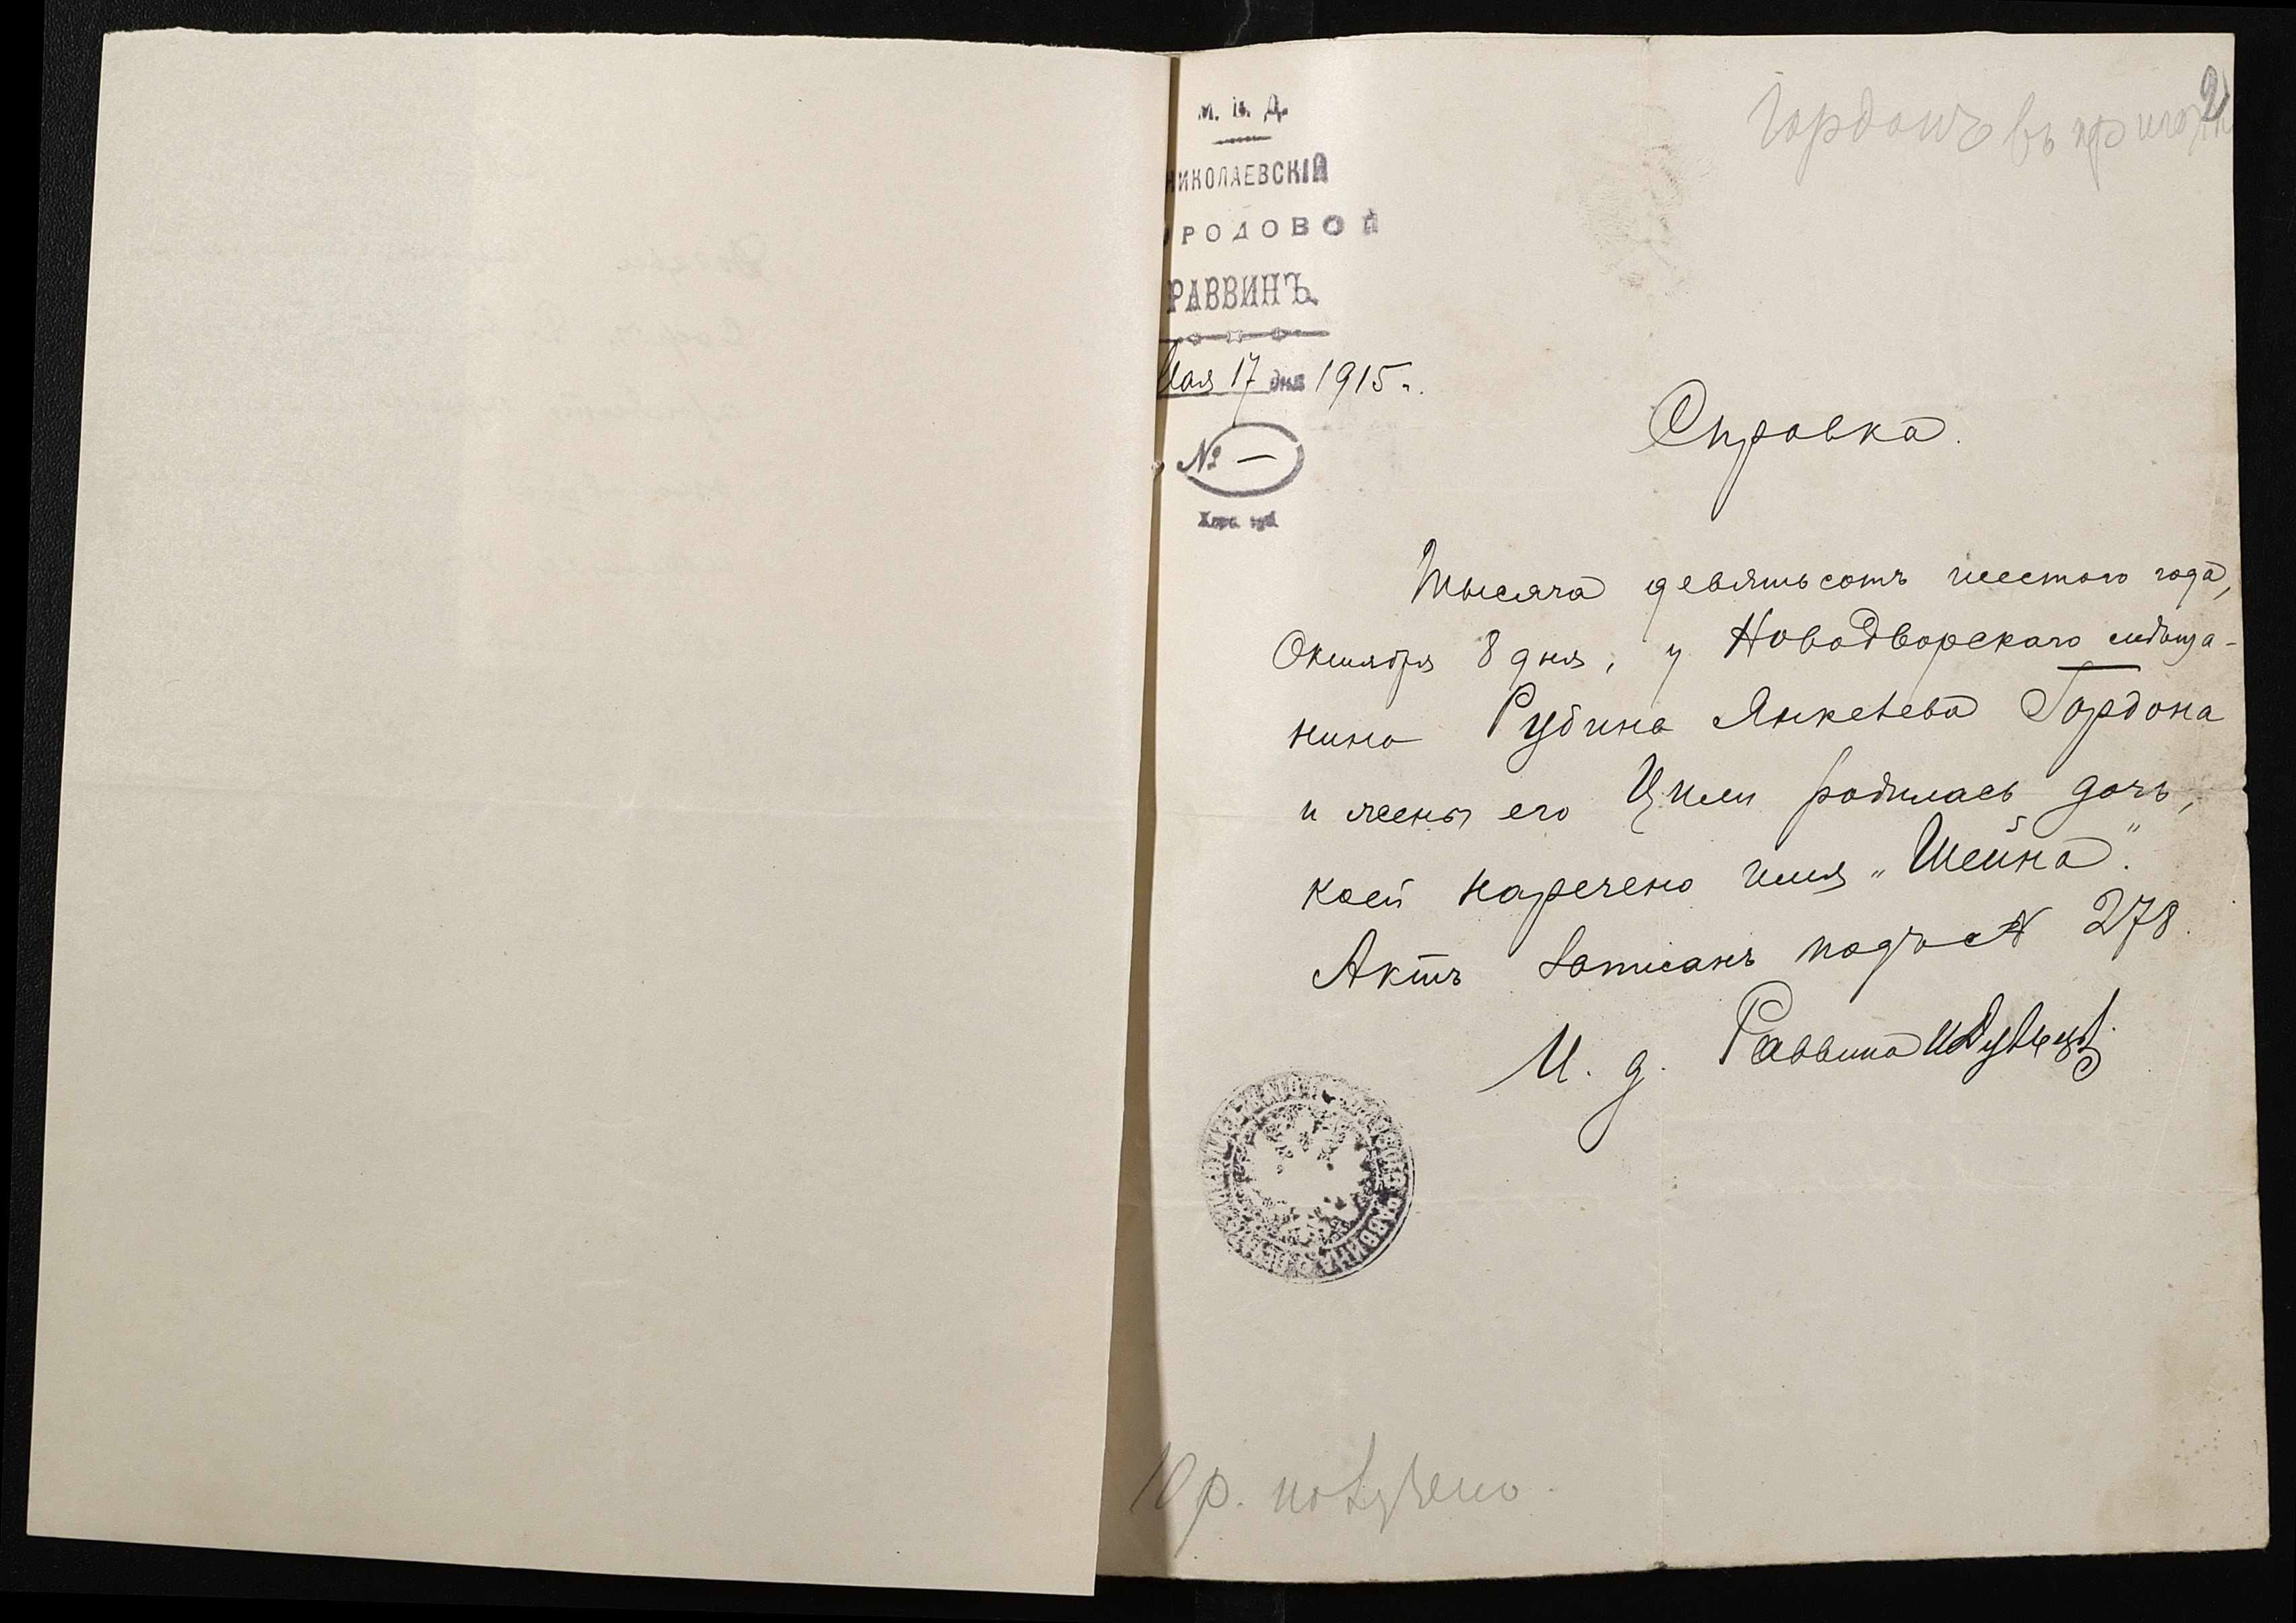 2
Гордонъ въ
М. В. Д.
НИКОЛАЕВСКІЙ
ГОРОДОВОЙ
РАВВИНЪ.
Мая 17 дня 1915 г.
№ —
Херс. губ.
Справка.
Тысяча девятьсотъ шестого года,
Октября 8 дня, у Новодворскаго мѣща-
нина Рубина Янкелева Гордона
и жены его Цили родилась дочь,
коей наречено имя „Шейна".
Актъ записанъ подъ № 278.
И. д. Раввина
10 р. получено.